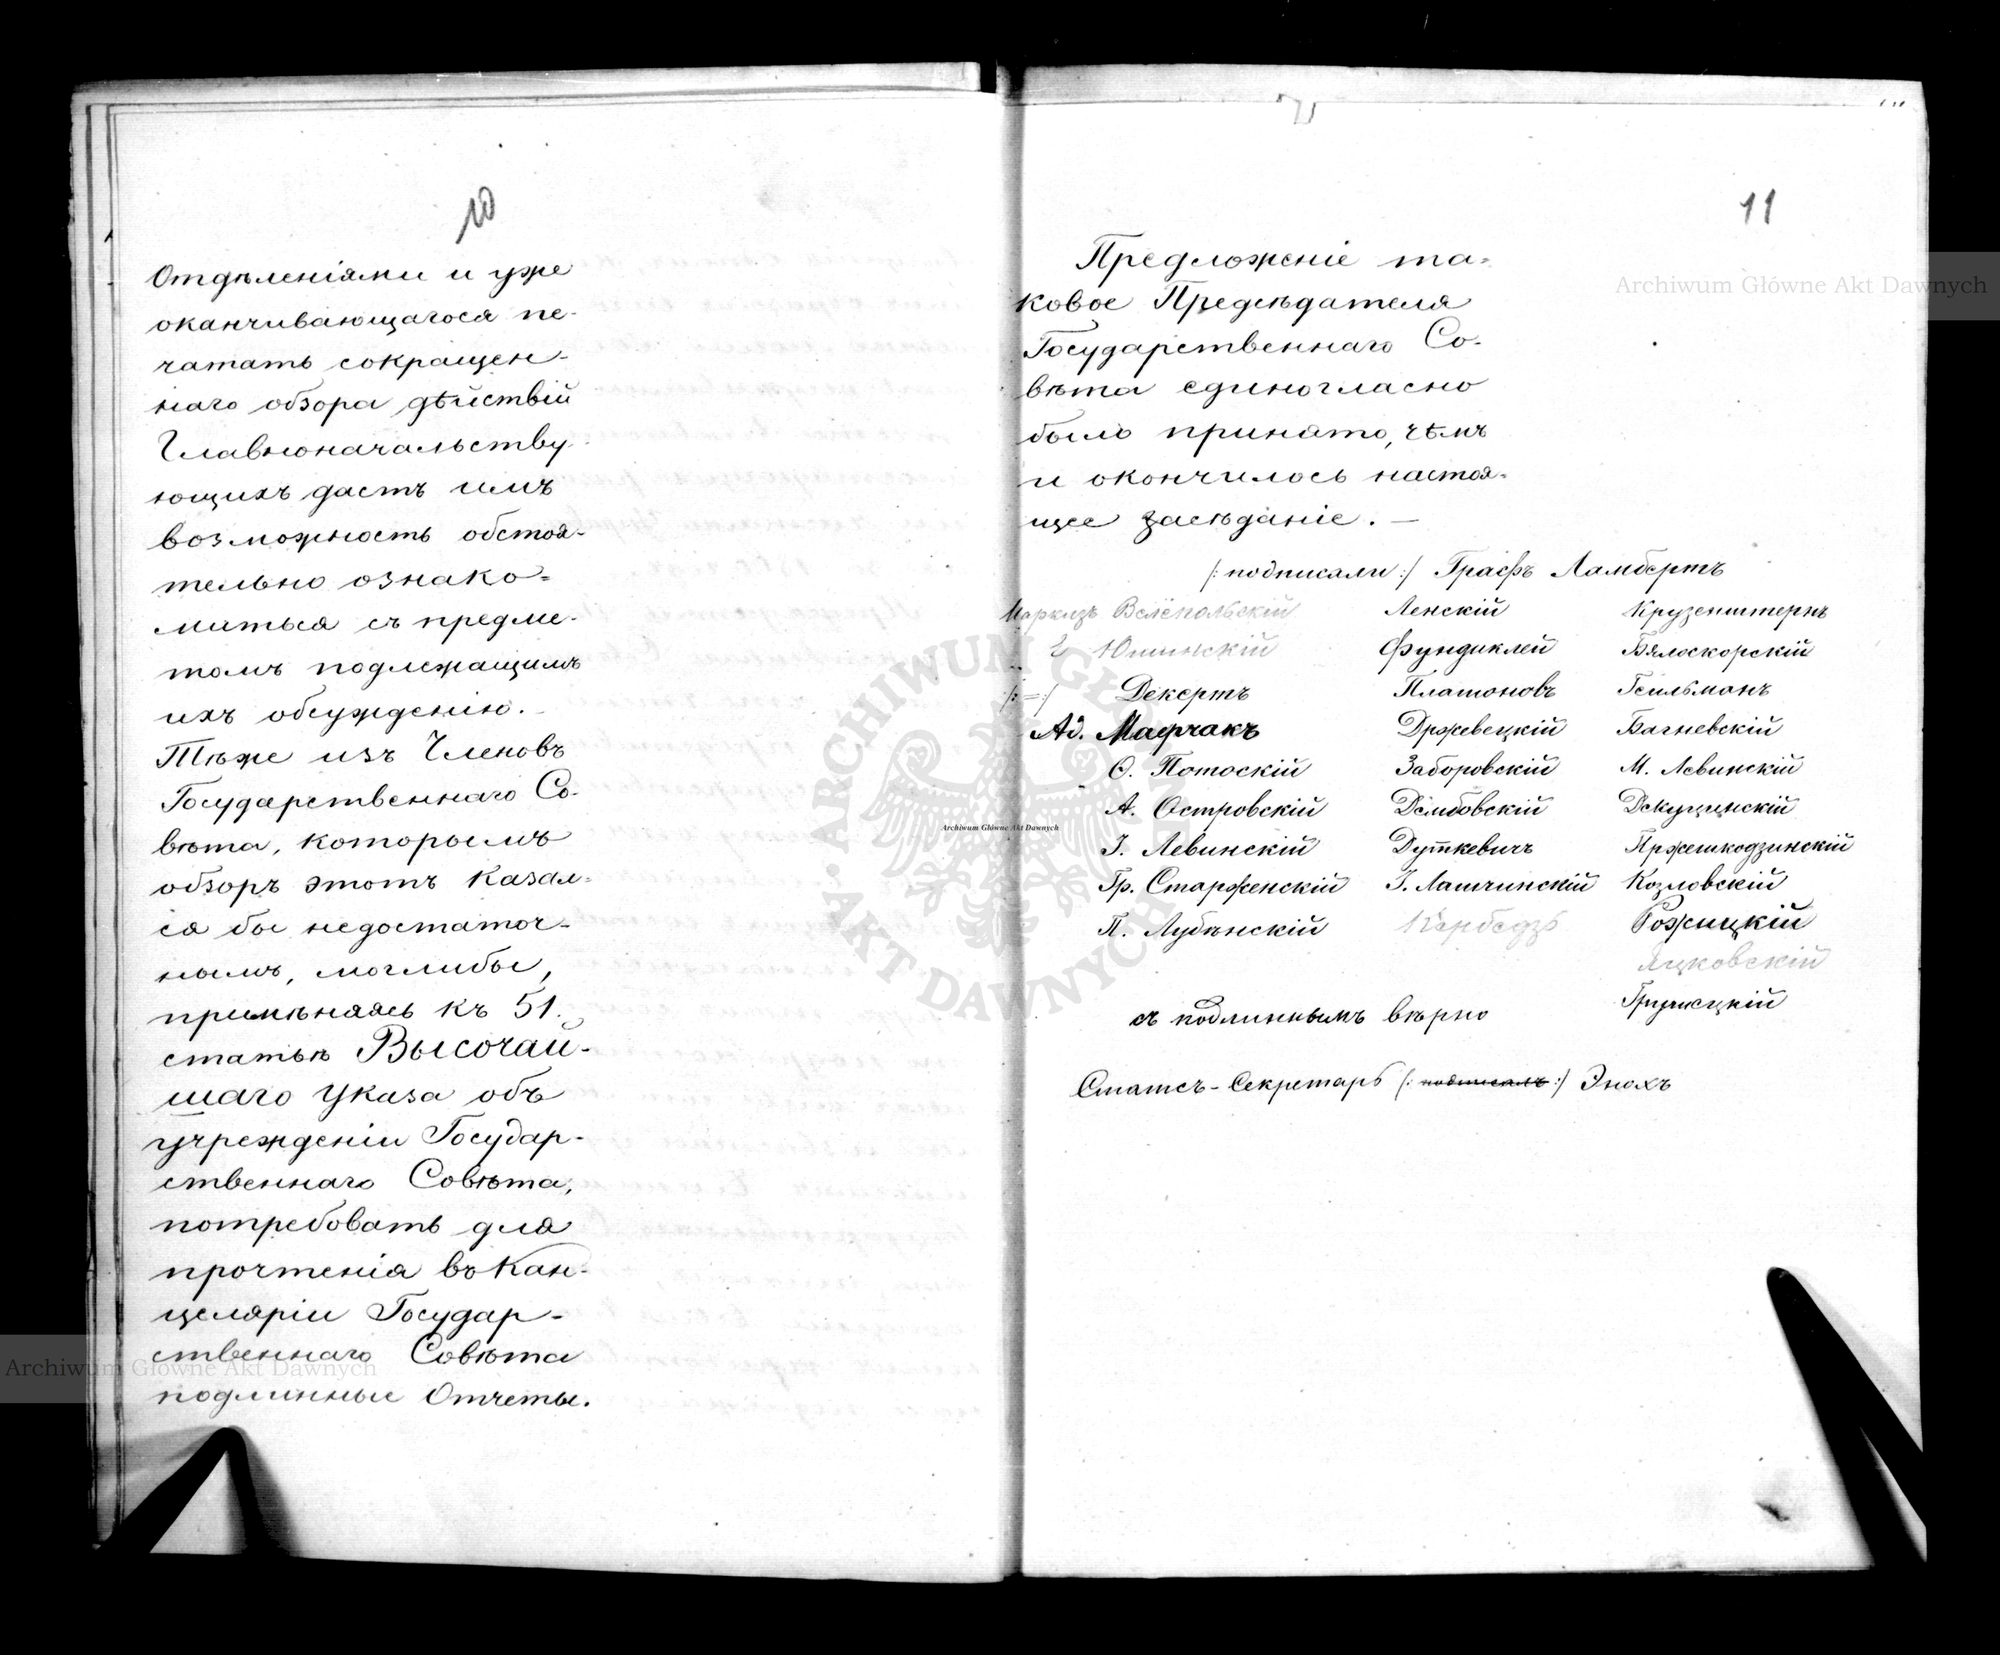 10
Отдѣленіями и уже
оканчивающагося пе-
чатать сокращен-
наго обзора дѣйствій
Главноначальству-
ющихъ дастъ имъ
возможность обстоя-
тельно ознако-
миться съ предме-
томъ подлежащимъ
ихъ обсужденію.
Тѣже изъ Членовъ
Государственнаго Со-
вѣта, которымъ
обзоръ этотъ казал-
ся бы недостаточ-
нымъ, моглибы,
примѣняясь къ 51.
статьѣ Высочай-
шаго Указа объ
учрежденіи Государ-
ственнаго Совѣта,
потребовать для
прочтенія въ Кан-
целяріи Государ-
ственнаго Совѣта
подлинные Отчеты.
11
Предложеніе та-
ковое Предсѣдателя
Государственнаго Со-
вѣта единогласно
было принято, чѣмъ
и окончилось настоя-
щее засѣданіе. —
/: подписали :/ Графъ Ламбертъ
Маркизъ Велёпольскій Ленскій Крузенштернъ
Фундуклей Бялоскорскій
/: = :/ Декертъ Платоновъ Гейльманъ
Ад. Држевецкій Багневскій
Ѳ. Потоскій Заборовскій М. Левинскій
А. Островскій Дембовскій
І. Левинскій Дуткевичъ
Гр. Старженскій І. Лащинскій Козловскій
П. Лубѣнскій Кербедзъ Рожицкій
Яцковскій
съ подлиннымъ вѣрно
Статсъ-Секретарь /: подписалъ :/ Энохъ
Archiwum Główne Akt Dawnych
Archiwum Główne Akt Dawnych
Archiwum Główne Akt Dawnych